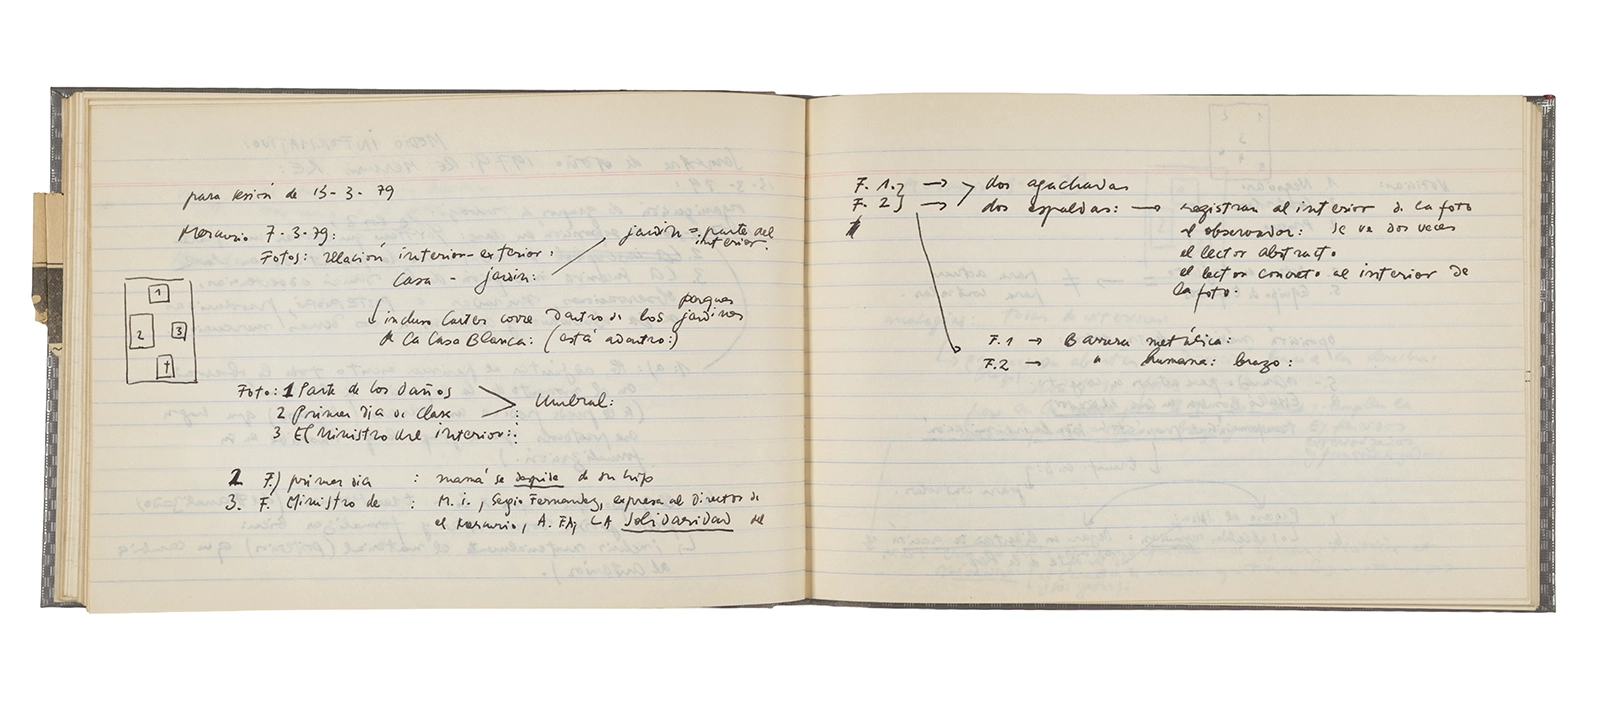 para sesión de 13-3-79
Mercurio 7-3-79:
Fotos: relación interior-exterior.
jardín = parte del
interior.
casa - jardín:
parques
incluso Carter corre dentro de los jardines
de la Casa Blanca: (está adentro:)
1
2
3
Foto: 1 Parte de los daños
2 Primer día de clase
3 El Ministro del interior:
Umbral:
2 F.) primer día : mamá se despide de su hijo
3. F. Ministro de : M. i., Sergio Fernandez, expresa al Director de
el Mercurio, A. F, LA Solidaridad del
F. 1. → dos agachadas
F. 2 → dos espaldas: → registran al interior de la foto
el observador: se ve dos veces
el lector abstracto
el lector concreto al interior de
la foto.
F.1 → Barrera metálica:
F.2 → " humana: brazo: